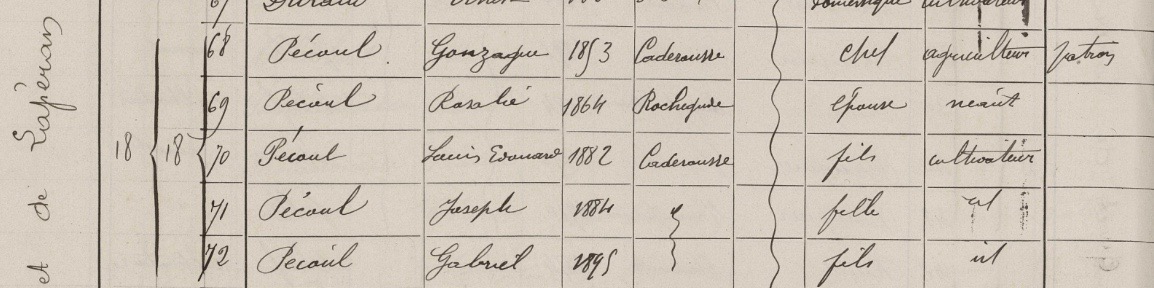 67
68 Pécoul Gonzague 1853 Caderousse chef agriculteur patron
69 Pécoul Rosalie 1864 Rochegude épouse neant
18 18 70 Pécoul Louis Edouard 1882 Caderousse fils cultivateur
71 Pécoul Joseph 1884 fille id
72 Pécoul Gabriel 1895 fils id
et de